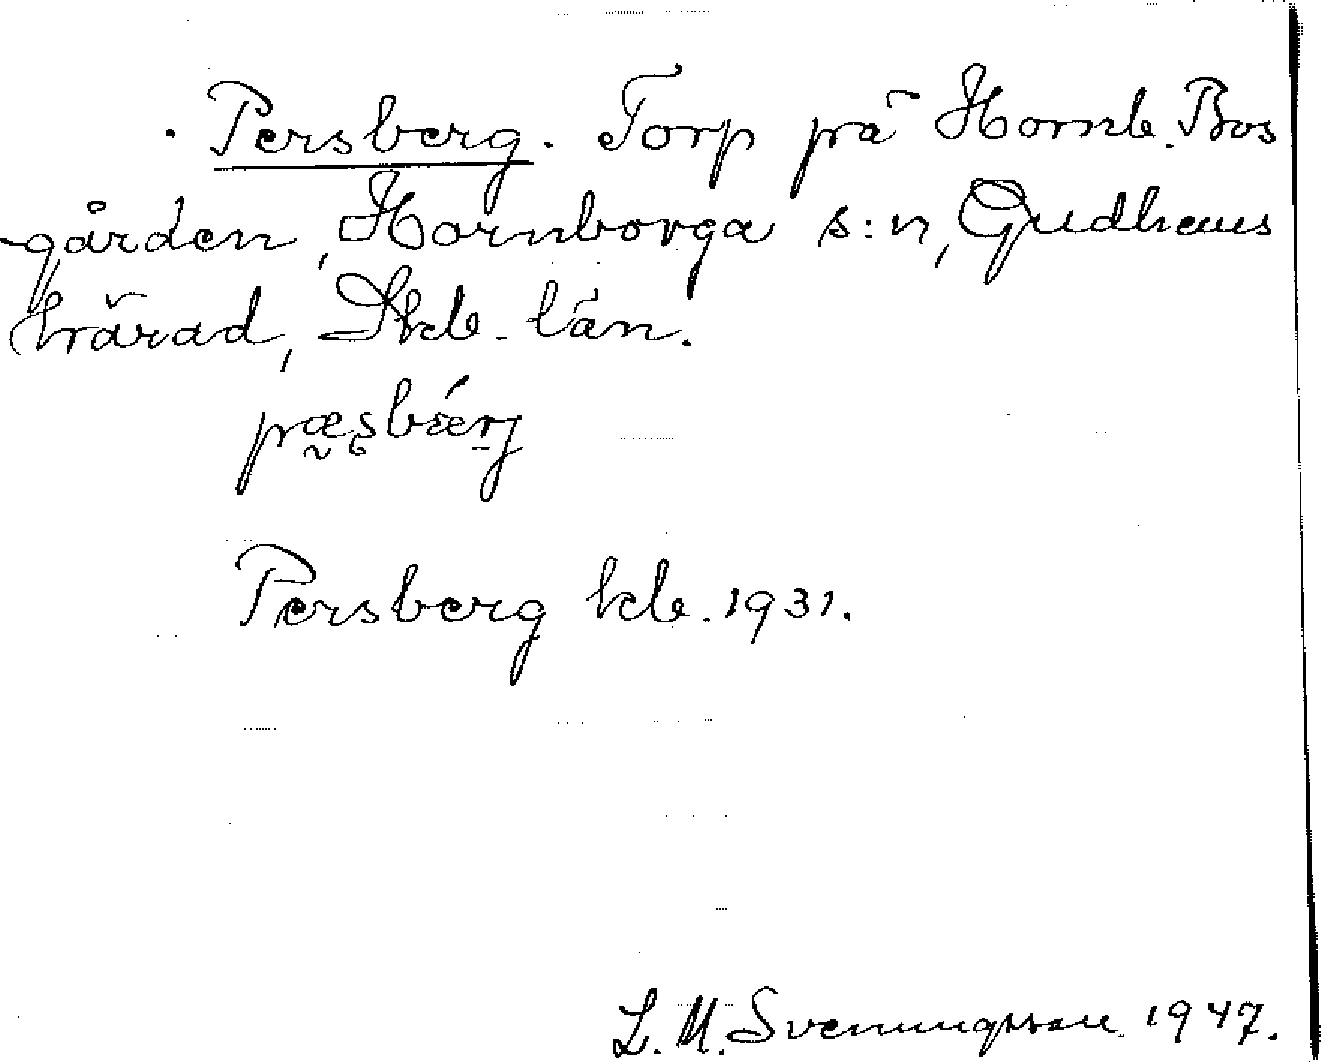 Persberg. Torp på Hornb. Bos
gården, Hornborga s:n, Gudhems
härad, Skb. län.
pæs̨bǽrj
Persberg kb. 1931.
L. M. Svenungsson 1947.